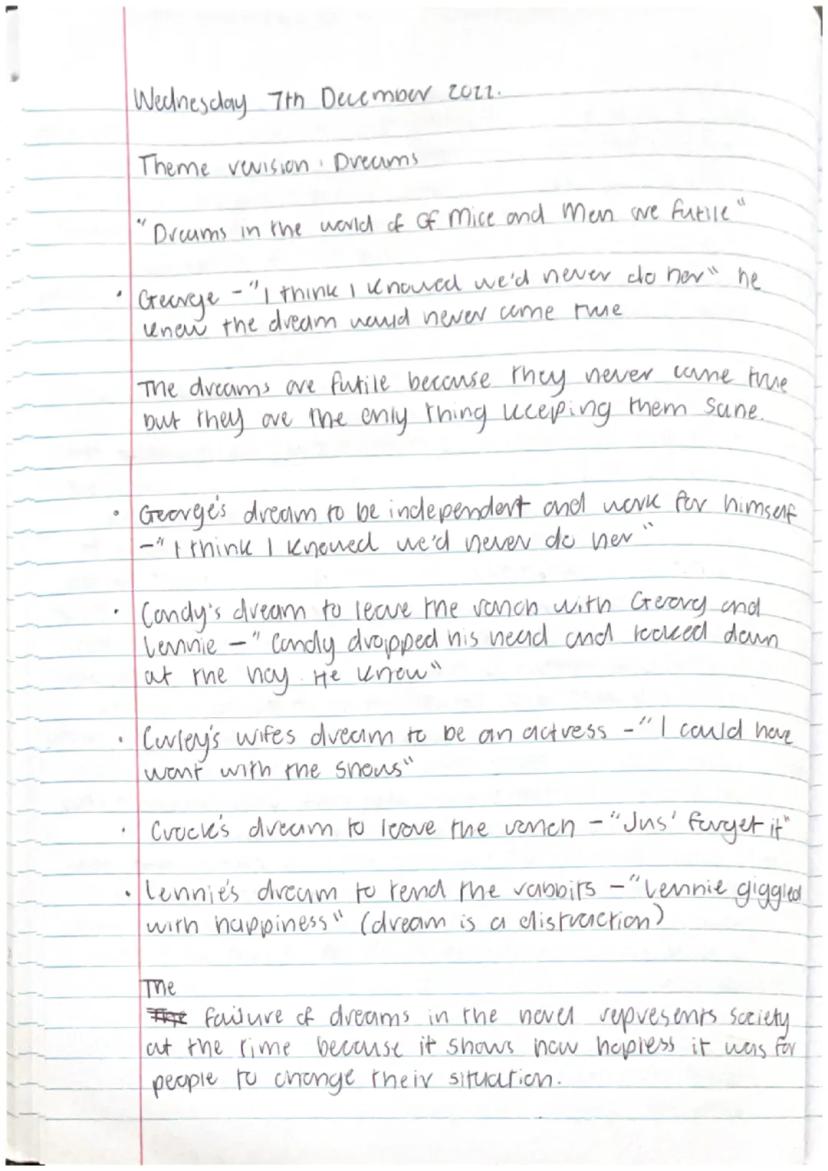 Wednesday 7th December 2022.
Theme revision: Dreams
"Dreams in the world of Of Mice and Men are futile"
• George - "I think I knowed we'd never do her" he
knew the dream would never come true
The dreams are futile because they never come true
but they are the only thing keeping them sane.
• George's dream to be independent and work for himself
- "I think I knowed we'd never do her"
• Candy's dream to leave the ranch with Georg and
Lennie - "Candy dropped his head and looked down
at the hay. He knew"
• Curley's wifes dream to be an actress - "I could have
went with the shows"
• Crook's dream to leave the ranch - "Jus' forget it"
• Lennie's dream to tend the rabbits - "Lennie giggled
with happiness" (dream is a distraction)
The
failure of dreams in the novel represents society
at the time because it shows how hopless it was for
people to change their situation.